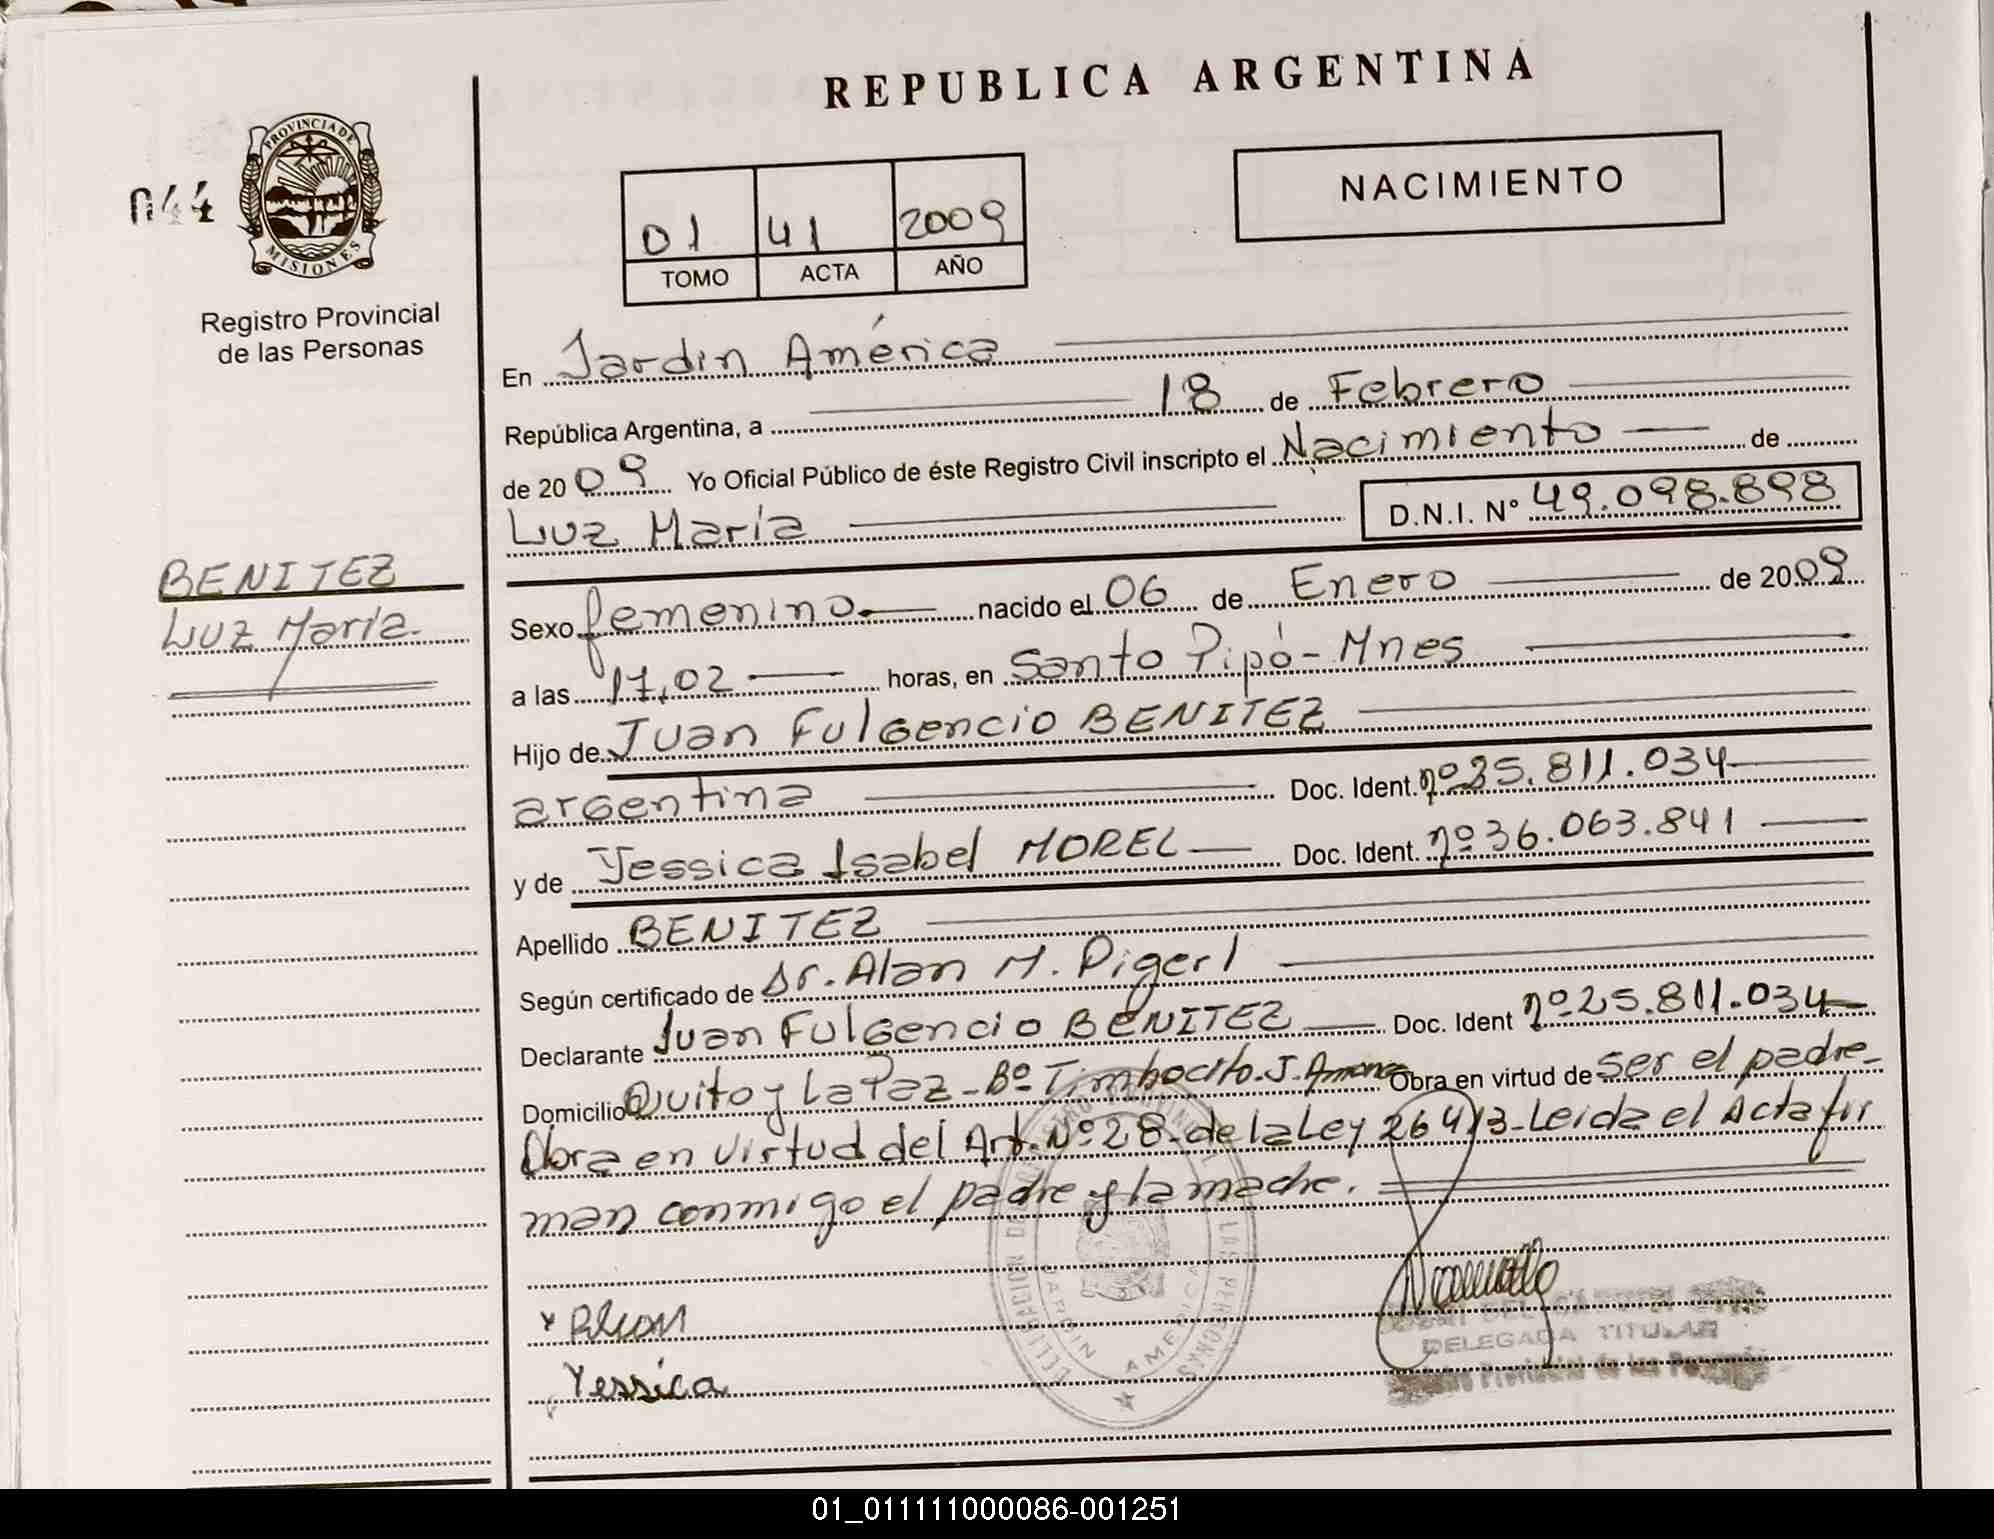 REPUBLICA ARGENTINA
044
PROVINCIA DE
MISIONES
Registro Provincial
de las Personas
NACIMIENTO
01 41 2009
TOMO ACTA AÑO
En Jardin América
República Argentina, a 18 de Febrero
de 2009 Yo Oficial Público de éste Registro Civil inscripto el Nacimiento de
Luz María D.N.I. N° 49.098.898
BENITEZ
Luz María
Sexo femenino nacido el 06 de Enero de 2009
a las 17,02 horas, en Santo Pipó-Mnes
Hijo de Juan Fulgencio BENITEZ
argentina Doc. Ident. nº 25.811.034
y de Yessica Isabel MOREL Doc. Ident. nº 36.063.841
Apellido BENITEZ
Según certificado de Dr. Alan M. Pigerl
Declarante Juan Fulgencio BENITEZ Doc. Ident nº 25.811.034
Domicilio Quito y La Paz - Bº Timbocito. J. Obra en virtud de ser el padre-
Obra en virtud del Art. Nº 28- de la Ley 26413- Leida el Acta fir
man conmigo el padre y la madre.
Yessica
JARDIN AMERICA
DELEGADA TITULAR
Provincial de las
01_011111000086-001251